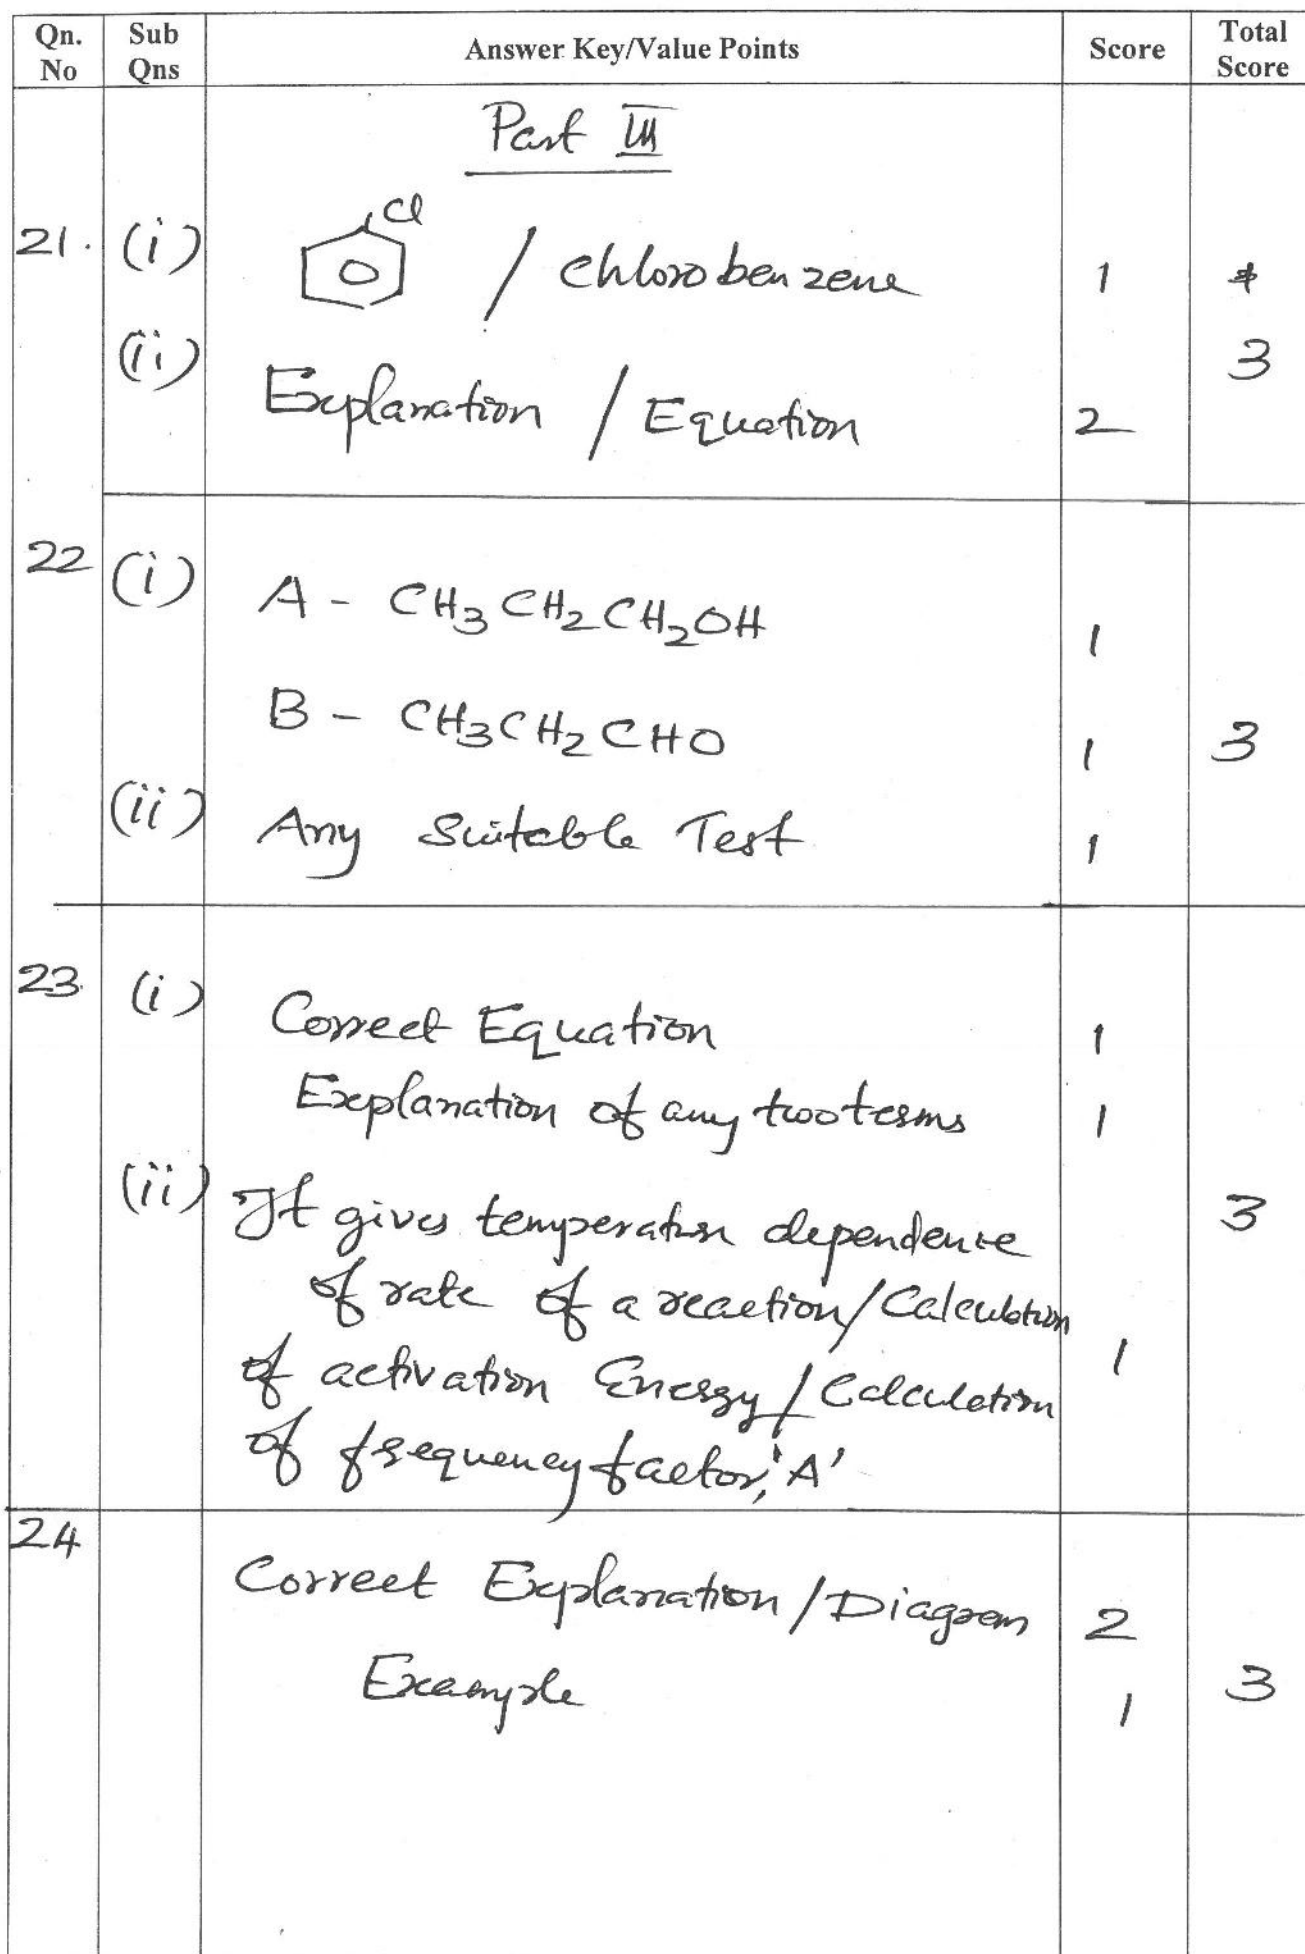 Qn. No Sub Qns Answer Key/Value Points Score Total Score
Part III
21. (i) Cl / Chlorobenzene 1
(ii) 3
Explanation / Equation 2
22 (i) A - CH3CH2CH2OH 1
B - CH3CH2CHO 1 3
(ii) Any Suitable Test 1
23. (i) Correct Equation 1
Explanation of any two terms 1
(ii) It gives temperature dependence 3
of rate of a reaction/Calculation
of activation Energy/Calculation 1
of frequency factor, 'A'
24
Correct Explanation/Diagram 2
Example 1 3